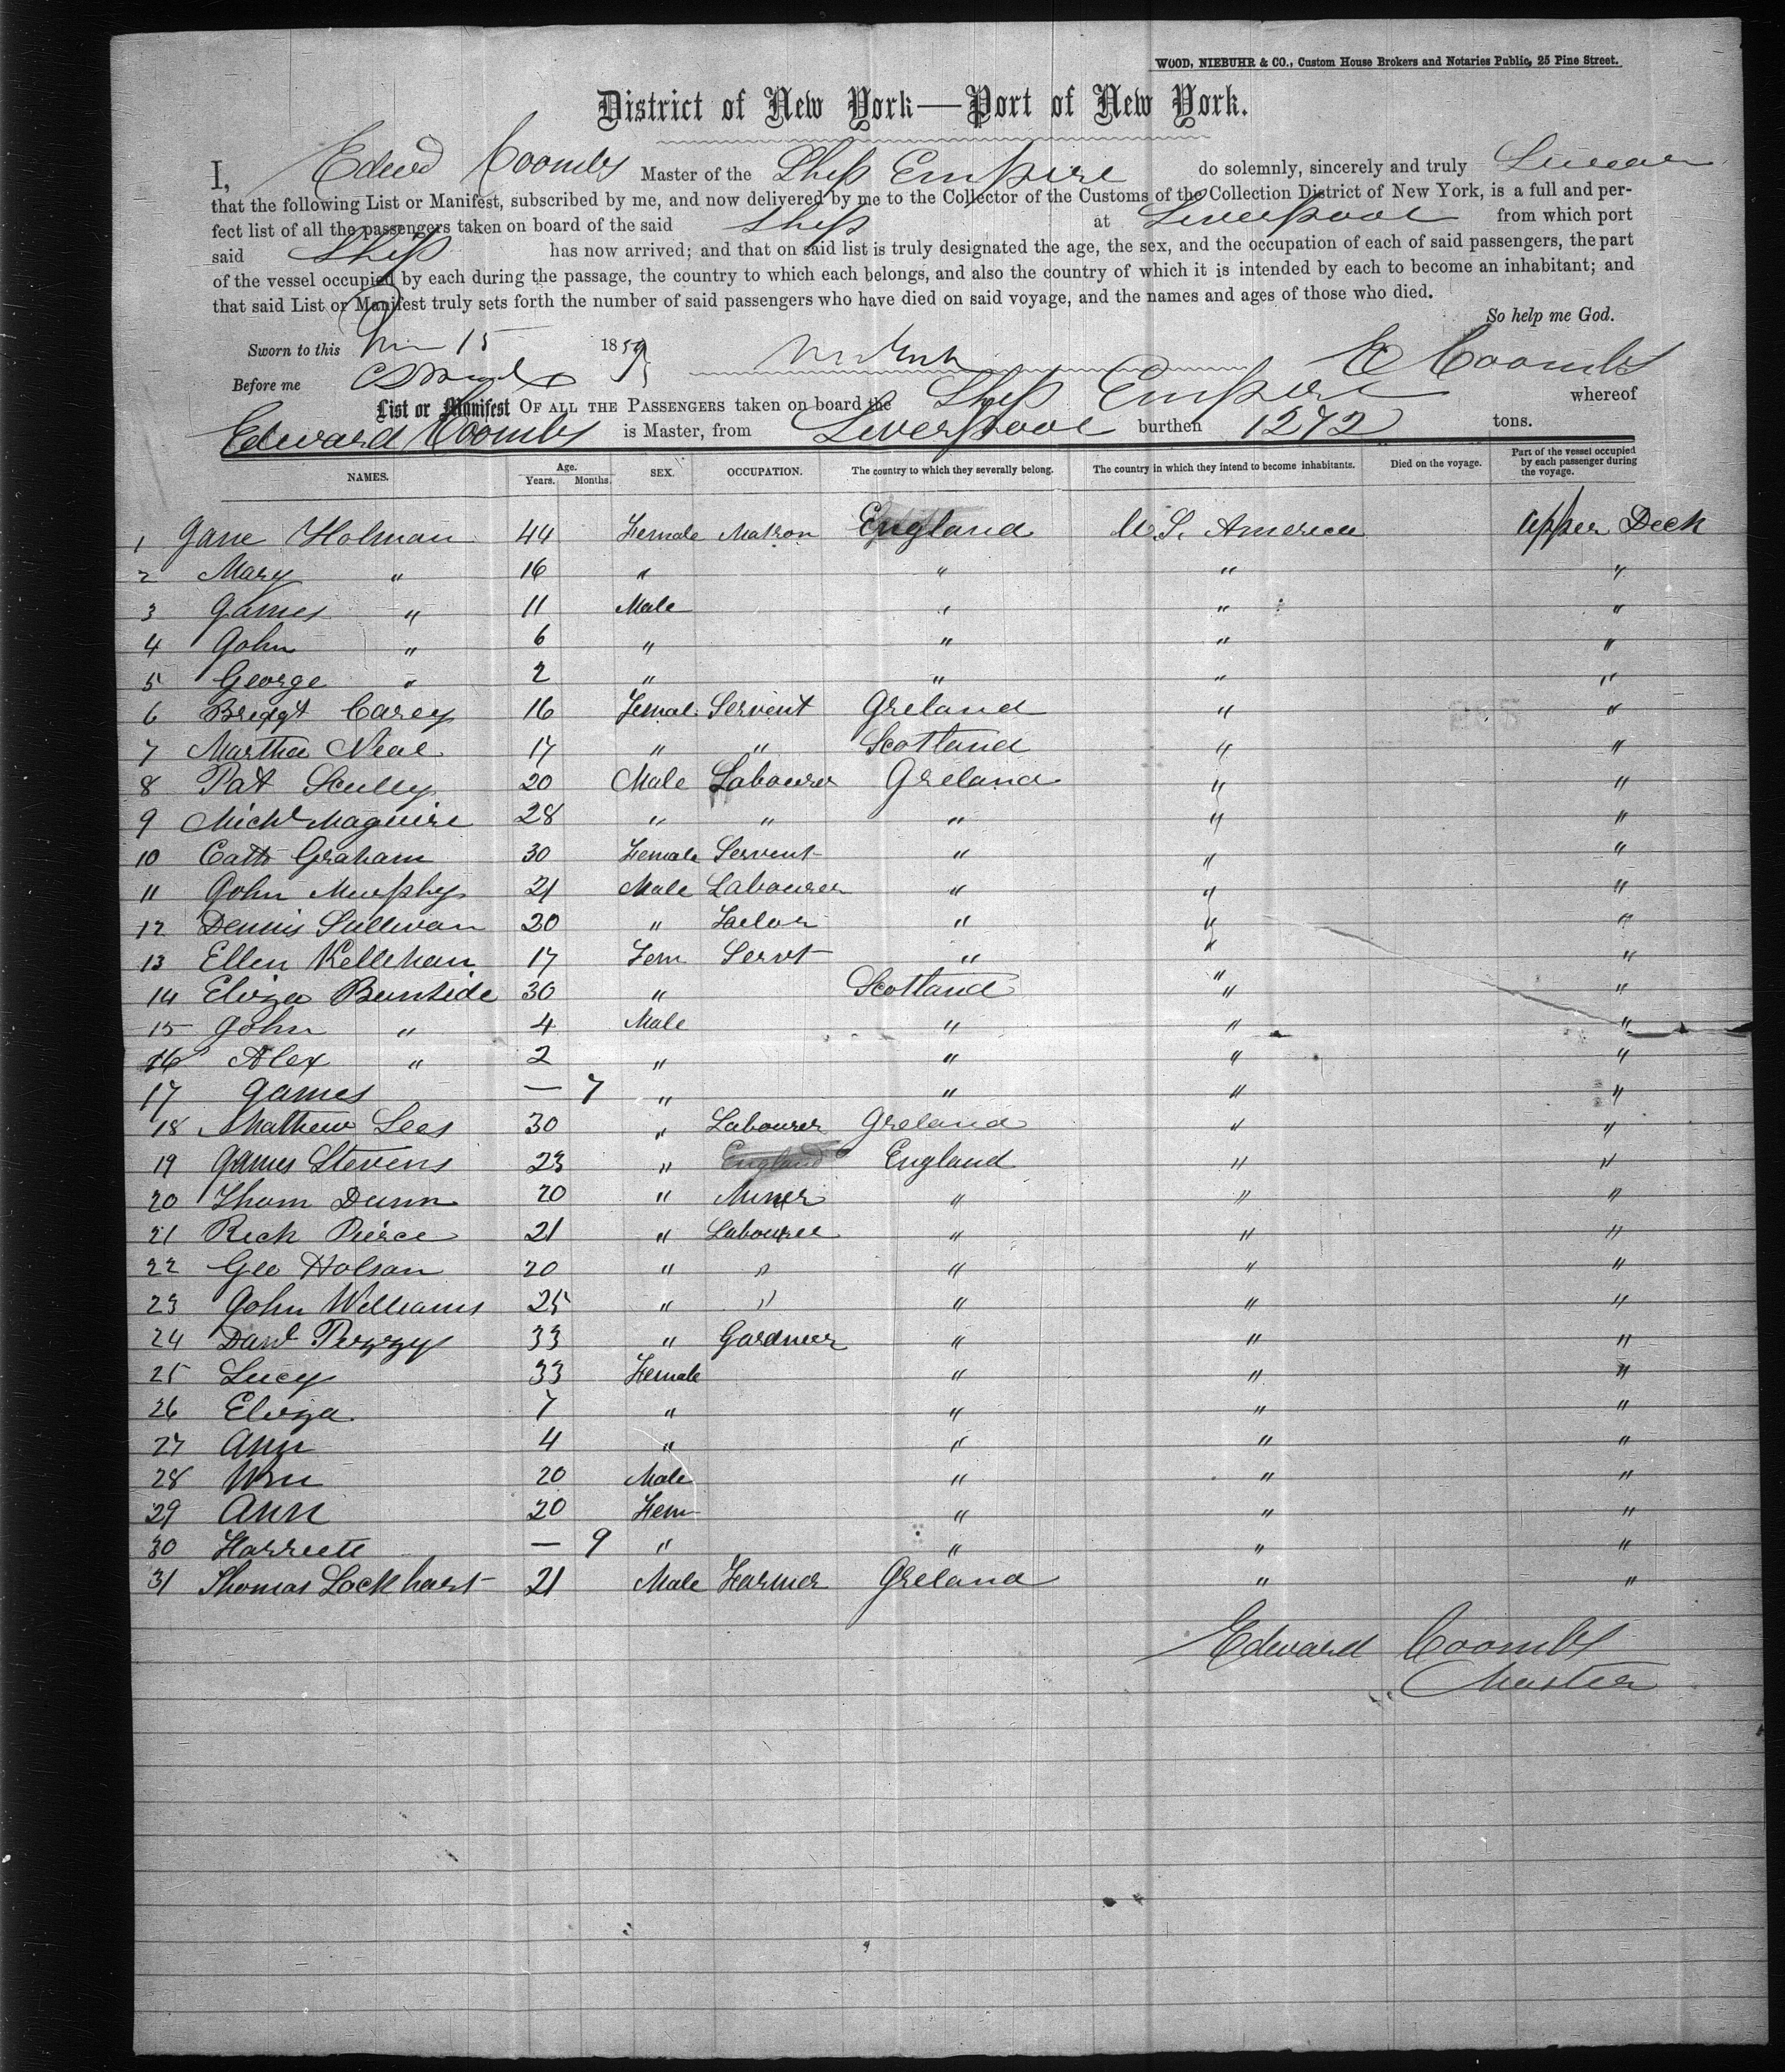 WOOD, NIEBUHR & CO., Custom House Brokers and Notaries Public, 25 Pine Street.
District of New York—Port of New York.
I, Edwd Coombs Master of the Ship Empire do solemnly, sincerely and truly Swear
that the following List or Manifest, subscribed by me, and now delivered by me to the Collector of the Customs of the Collection District of New York, is a full and per-
fect list of all the passengers taken on board of the said Ship at Liverpool from which port
said Ship has now arrived; and that on said list is truly designated the age, the sex, and the occupation of each of said passengers, the part
of the vessel occupied by each during the passage, the country to which each belongs, and also the country of which it is intended by each to become an inhabitant; and
that said List or Manifest truly sets forth the number of said passengers who have died on said voyage, and the names and ages of those who died.
So help me God.
Sworn to this 15 1859
Before me E Coombs
List or Manifest OF ALL THE PASSENGERS taken on board the Ship Empire whereof
Edward Coombs is Master, from Liverpool burthen 1272 tons.
NAMES. Age. Years. Months. SEX. OCCUPATION. The country to which they severally belong. The country in which they intend to become inhabitants. Died on the voyage. Part of the vessel occupied by each passenger during the voyage.
1 Jane Holman 44 Female Matron England U.S. America Upper Deck
2 Mary " 16 " " " "
3 James " 11 Male " " "
4 John " 6 " " " "
5 George " 2 " " " "
6 Bridgt Carey 16 Femal Servent Ireland " "
7 Martha Neal 17 " " Scotland " "
8 Pat Scully 20 Male Labourer Ireland " "
9 Michl Maguire 28 " " " " "
10 Cath Graham 30 Female Servent " " "
11 John Murphy 21 Male Labourer " " "
12 Dennis Sullivan 30 " Tailor " " "
13 Ellen Kellehan 17 Fem Servt " " "
14 Eliza Burnside 30 " Scotland " "
15 John " 4 Male " " "
16 Alex " 2 " " " "
17 James — 7 " " " "
18 Mathew Lees 30 " Labourer Ireland " "
19 James Stevens 23 " England England " "
20 Thom Dunn 20 " Miner " " "
21 Rich Pierce 21 " Labourer " " "
22 Geo Holson 20 " " " " "
23 John Williams 25 " " " " "
24 Danl Pezzy 33 " Gardner " " "
25 Lucy 33 Female " " "
26 Eliza 7 " " " "
27 Ann 4 " " " "
28 Wm 20 Male " " "
29 Ann 20 Fem " " "
30 Harriett — 9 " " " "
31 Thomas Lockhart 21 Male Farmer Ireland " "
Edward Coombs
Master